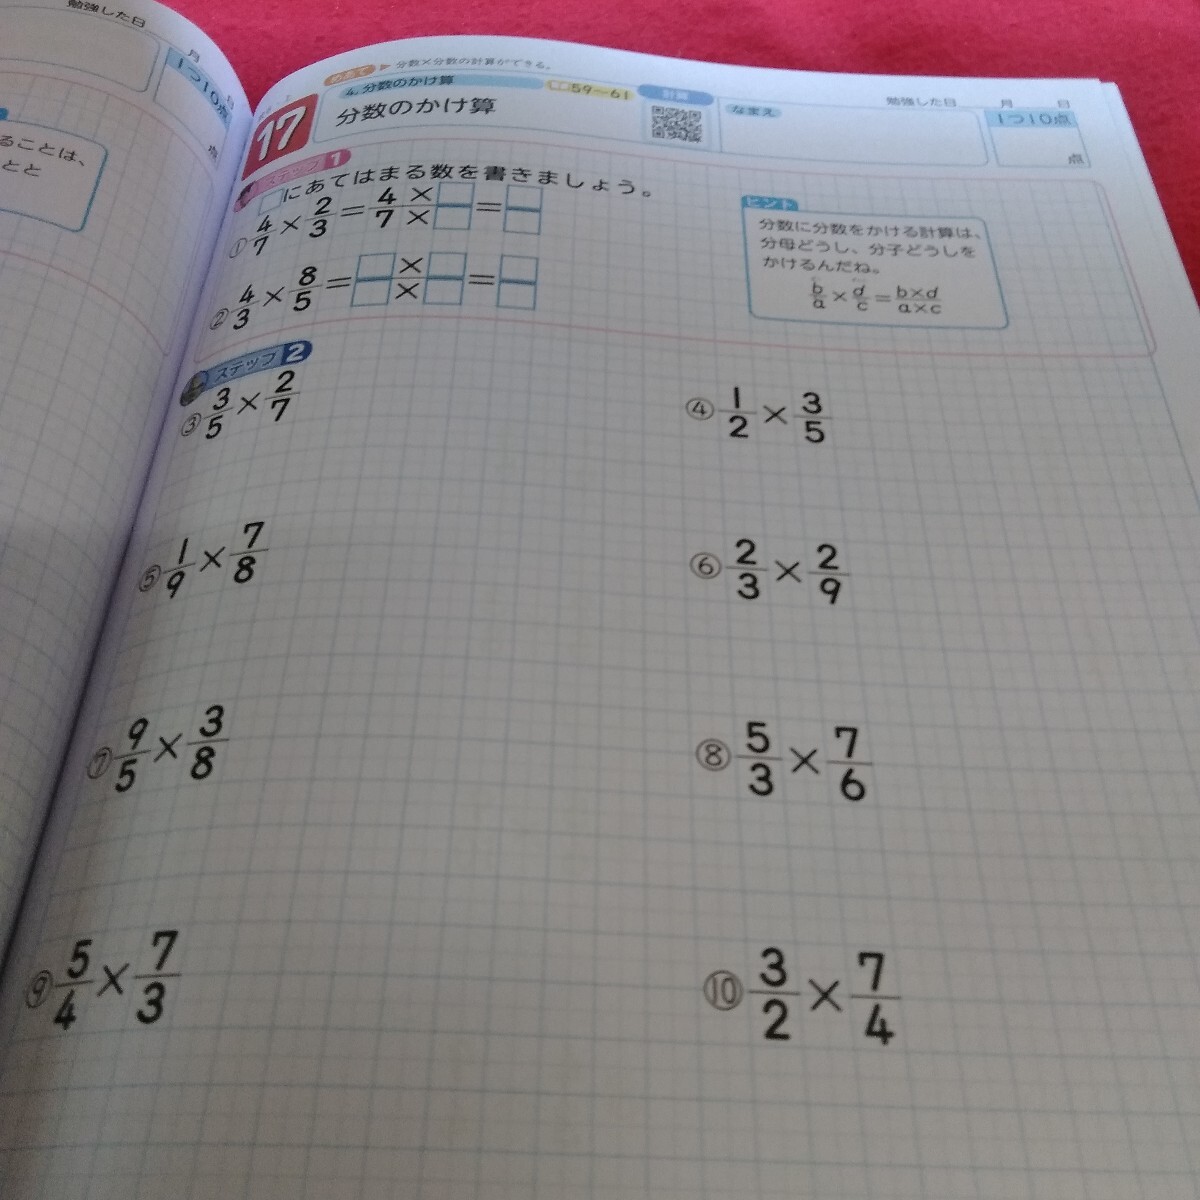 勉強した日
月
日
1つ10点
点
ることは、
とと
めあて ▶ 分数×分数の計算ができる。
17
4. 分数のかけ算
59~61
計算
分数のかけ算
なまえ
勉強した日 月 日
1つ10点
点
ステップ1
□にあてはまる数を書きましょう。
① 4/7 × 2/3 = 4×□/7×□ = □/□
② 4/3 × 8/5 = □×□/□×□ = □/□
ヒント
分数に分数をかける計算は、
分母どうし、分子どうしを
かけるんだね。
b/a × d/c = b×d/a×c
ステップ2
③ 3/5 × 2/7
④ 1/2 × 3/5
⑤ 1/9 × 7/8
⑥ 2/3 × 2/9
⑦ 9/5 × 3/8
⑧ 5/3 × 7/6
⑨ 5/4 × 7/3
⑩ 3/2 × 7/4